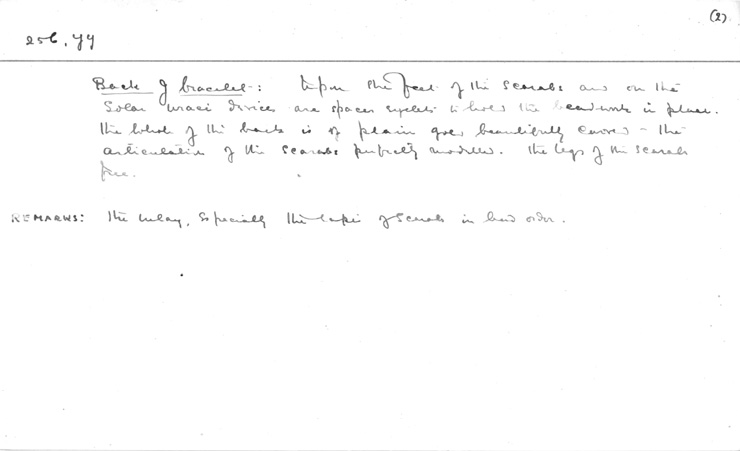 (2)
256, yy
Back of bracelet: Upon the feet of the scarabs and on the
Solar uraei devices are spacer eyelets to hold the beadwork in place.
The whole of the back is of plain gold beautifully carved – the
articulation of the scarabs perfectly modelled. The legs of the scarabs
free.
REMARKS: The inlay, especially the lapis of scarabs in bad order.